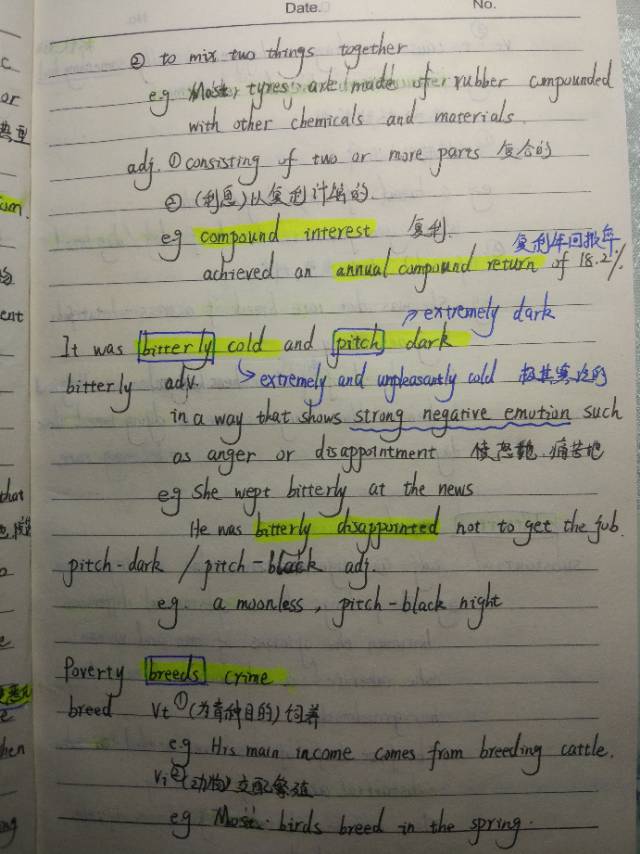 Date.
No.
② to mix two things together
e.g Most tyres are made of rubber compounded
with other chemicals and materials.
adj. ① consisting of two or more parts 复合的
② (利息) 以复利计算的.
eg compound interest 复利.
复利年回报率
achieved an annual compound return of 18.2%
extremely dark
It was bitterly cold and pitch dark
bitterly adv. extremely and unpleasantly cold 极其寒冷的
in a way that shows strong negative emotion such
as anger or disappointment 愤怒地. 痛苦地
eg She wept bitterly at the news
He was bitterly disappointed not to get the job.
pitch-dark / pitch-black adj.
eg. a moonless, pitch-black night
Poverty breeds crime
breed vt ① (为育种目的) 饲养
e.g His main income comes from breeding cattle.
vi ② (动物) 交配繁殖
eg Most birds breed in the spring.